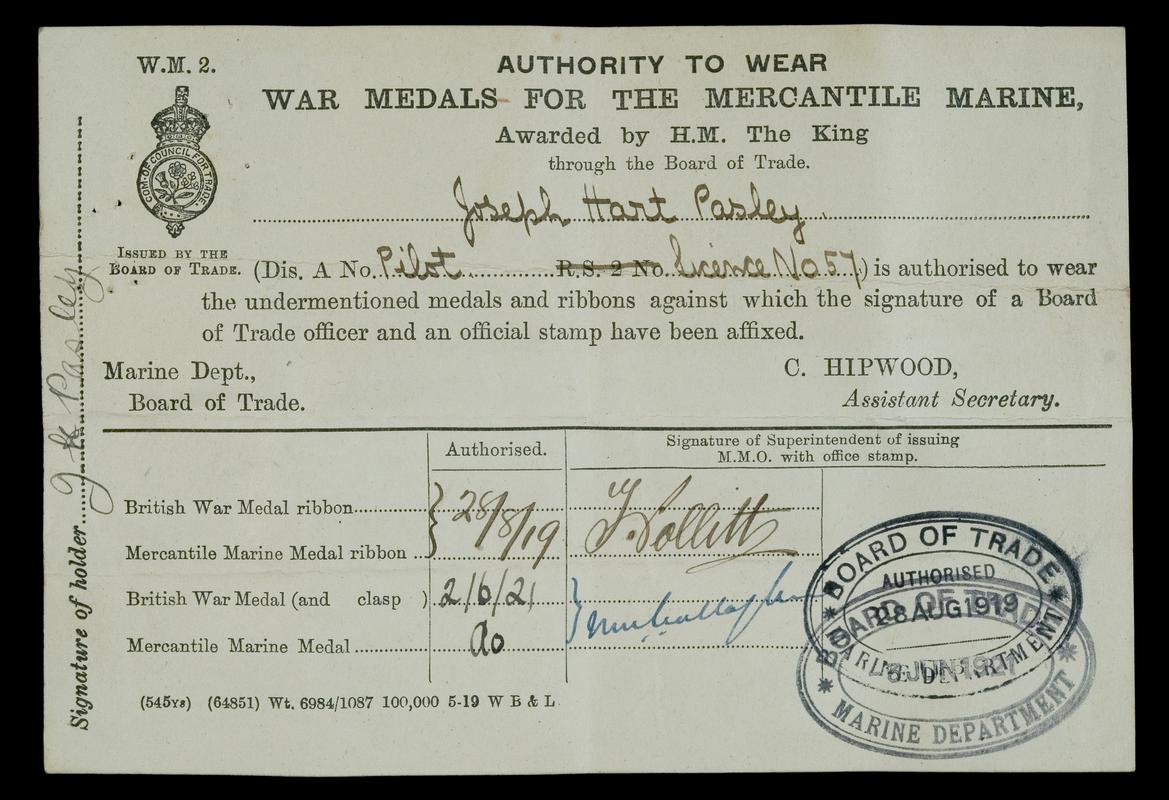 W.M. 2.
AUTHORITY TO WEAR
WAR MEDALS FOR THE MERCANTILE MARINE,
Awarded by H.M. The King
through the Board of Trade.
COM. OF COUNCIL FOR TRADE.
Joseph Hart Pasley
ISSUED BY THE
BOARD OF TRADE.
(Dis. A No. Pilot R.S. 2 No. Licence No 57.) is authorised to wear
the undermentioned medals and ribbons against which the signature of a Board
of Trade officer and an official stamp have been affixed.
Marine Dept.,
Board of Trade.
C. HIPWOOD,
Assistant Secretary.
Authorised.
Signature of Superintendent of issuing
M.M.O. with office stamp.
British War Medal ribbon
Mercantile Marine Medal ribbon
28/8/19
British War Medal (and clasp ) 2/6/21
Mercantile Marine Medal do
(545ys) (64851) Wt. 6984/1087 100,000 5-19 W B & L
Signature of holder J H Pasley
BOARD OF TRADE
AUTHORISED
28 AUG 1919
MARINE DEPARTMENT
BOARD OF TRADE
MARINE DEPARTMENT